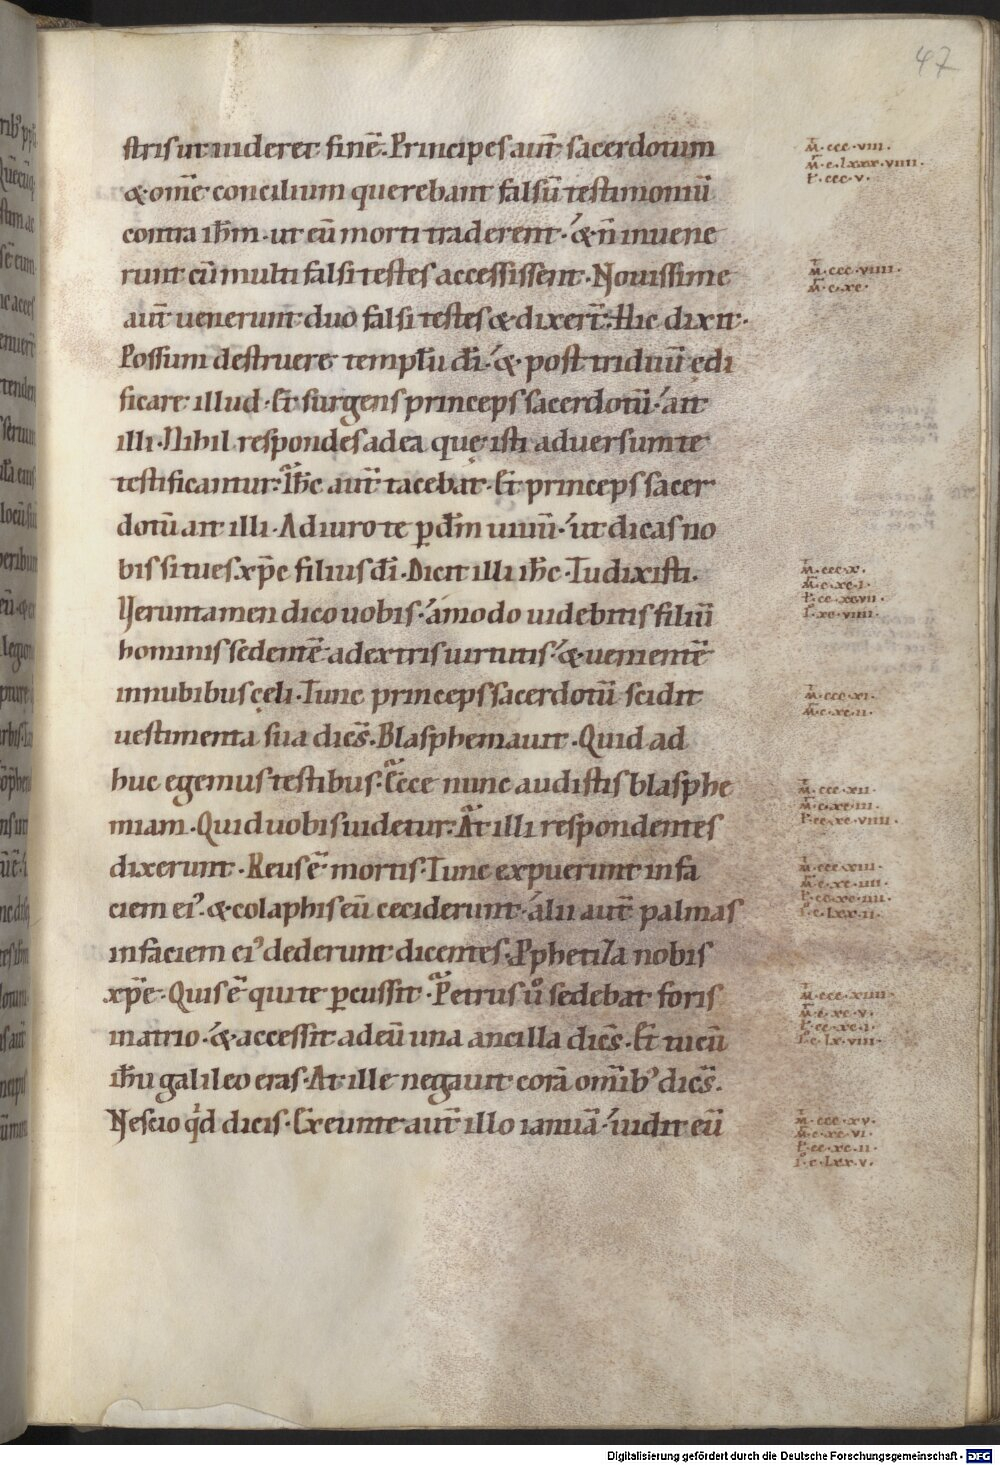 47
stris ut uideret finē. Principes aut̄ sacerdotum
& om̄e concilium querebant falsū testimoniū
contra ih̄m. ut eū morti traderent. & n̄ inuene
runt cū multi falsi testes accessissent. Nouissime
aut̄ uenerunt duo falsi testes & dixer̄t. Hic dixit.
Possum destruere templ̄u dī. & post triduū ędi
ficare illud. Et surgens princeps sacerdotū. ait
illi. Nihil respondes ad ea quę isti aduersum te
testificantur. Ih̄c aut̄ tacebat. Et princeps sacer
dotū ait illi. Adiuro te p̱ dm̄ uiuū. ut dicas no
bis si tu es xp̄c filius dī. Dicit illi ih̄c. Tu dixisti.
Veruntamen dico uobis. amodo uidebitis filiū
hominis sedentē a dextris uirtutis. & uenientē
in nubibus cęli. Tunc princeps sacerdotū scidit
uestimenta sua dicēs. Blasphemauit. Quid ad
huc egemus testibus. Ecce nunc audistis blasphe
miam. Quid uobis uidetur. At illi respondentes
dixerunt. Reus ē mortis. Tunc expuerunt in fa
ciem eiꝰ. & colaphis eū ceciderunt. alii aut̄ palmas
in faciem eiꝰ dederunt dicentes. Pphetiza nobis
xp̄e. Quis ē qui te p̱cussit. Petrus ů sedebat foris
in atrio. & accessit ad eū una ancilla dicēs. Et tu cū
ih̄u galileo eras. At ille negauit corā omībꝰ dicēs.
Nescio qd dicis. Exeunte aut̄ illo ianuā. uidit eū
M̄.ccc.viii.
M̄.c.lxxx.viiii.
I.ccc.v.
M̄.ccc.viiii.
M̄.c.xc.
M̄.ccc.x.
M̄.c.xc.i.
L.cc.xcvii.
I.xc.viiii.
M̄.ccc.xi.
M̄.c.xc.ii.
M̄.ccc.xii.
M̄.c.xc.iii.
L.cc.xc.viiii.
M̄.ccc.xiii.
M̄.c.xc.iiii.
I.c.lxx.ii.
M̄.ccc.xiiii.
M̄.c.xc.v.
L.cc.xc.i.
I.c.lx.viii.
M̄.ccc.xv.
M̄.c.xc.vi.
L.cc.xc.ii.
I.c.lxx.v.
Digitalisierung gefördert durch die Deutsche Forschungsgemeinschaft - DFG